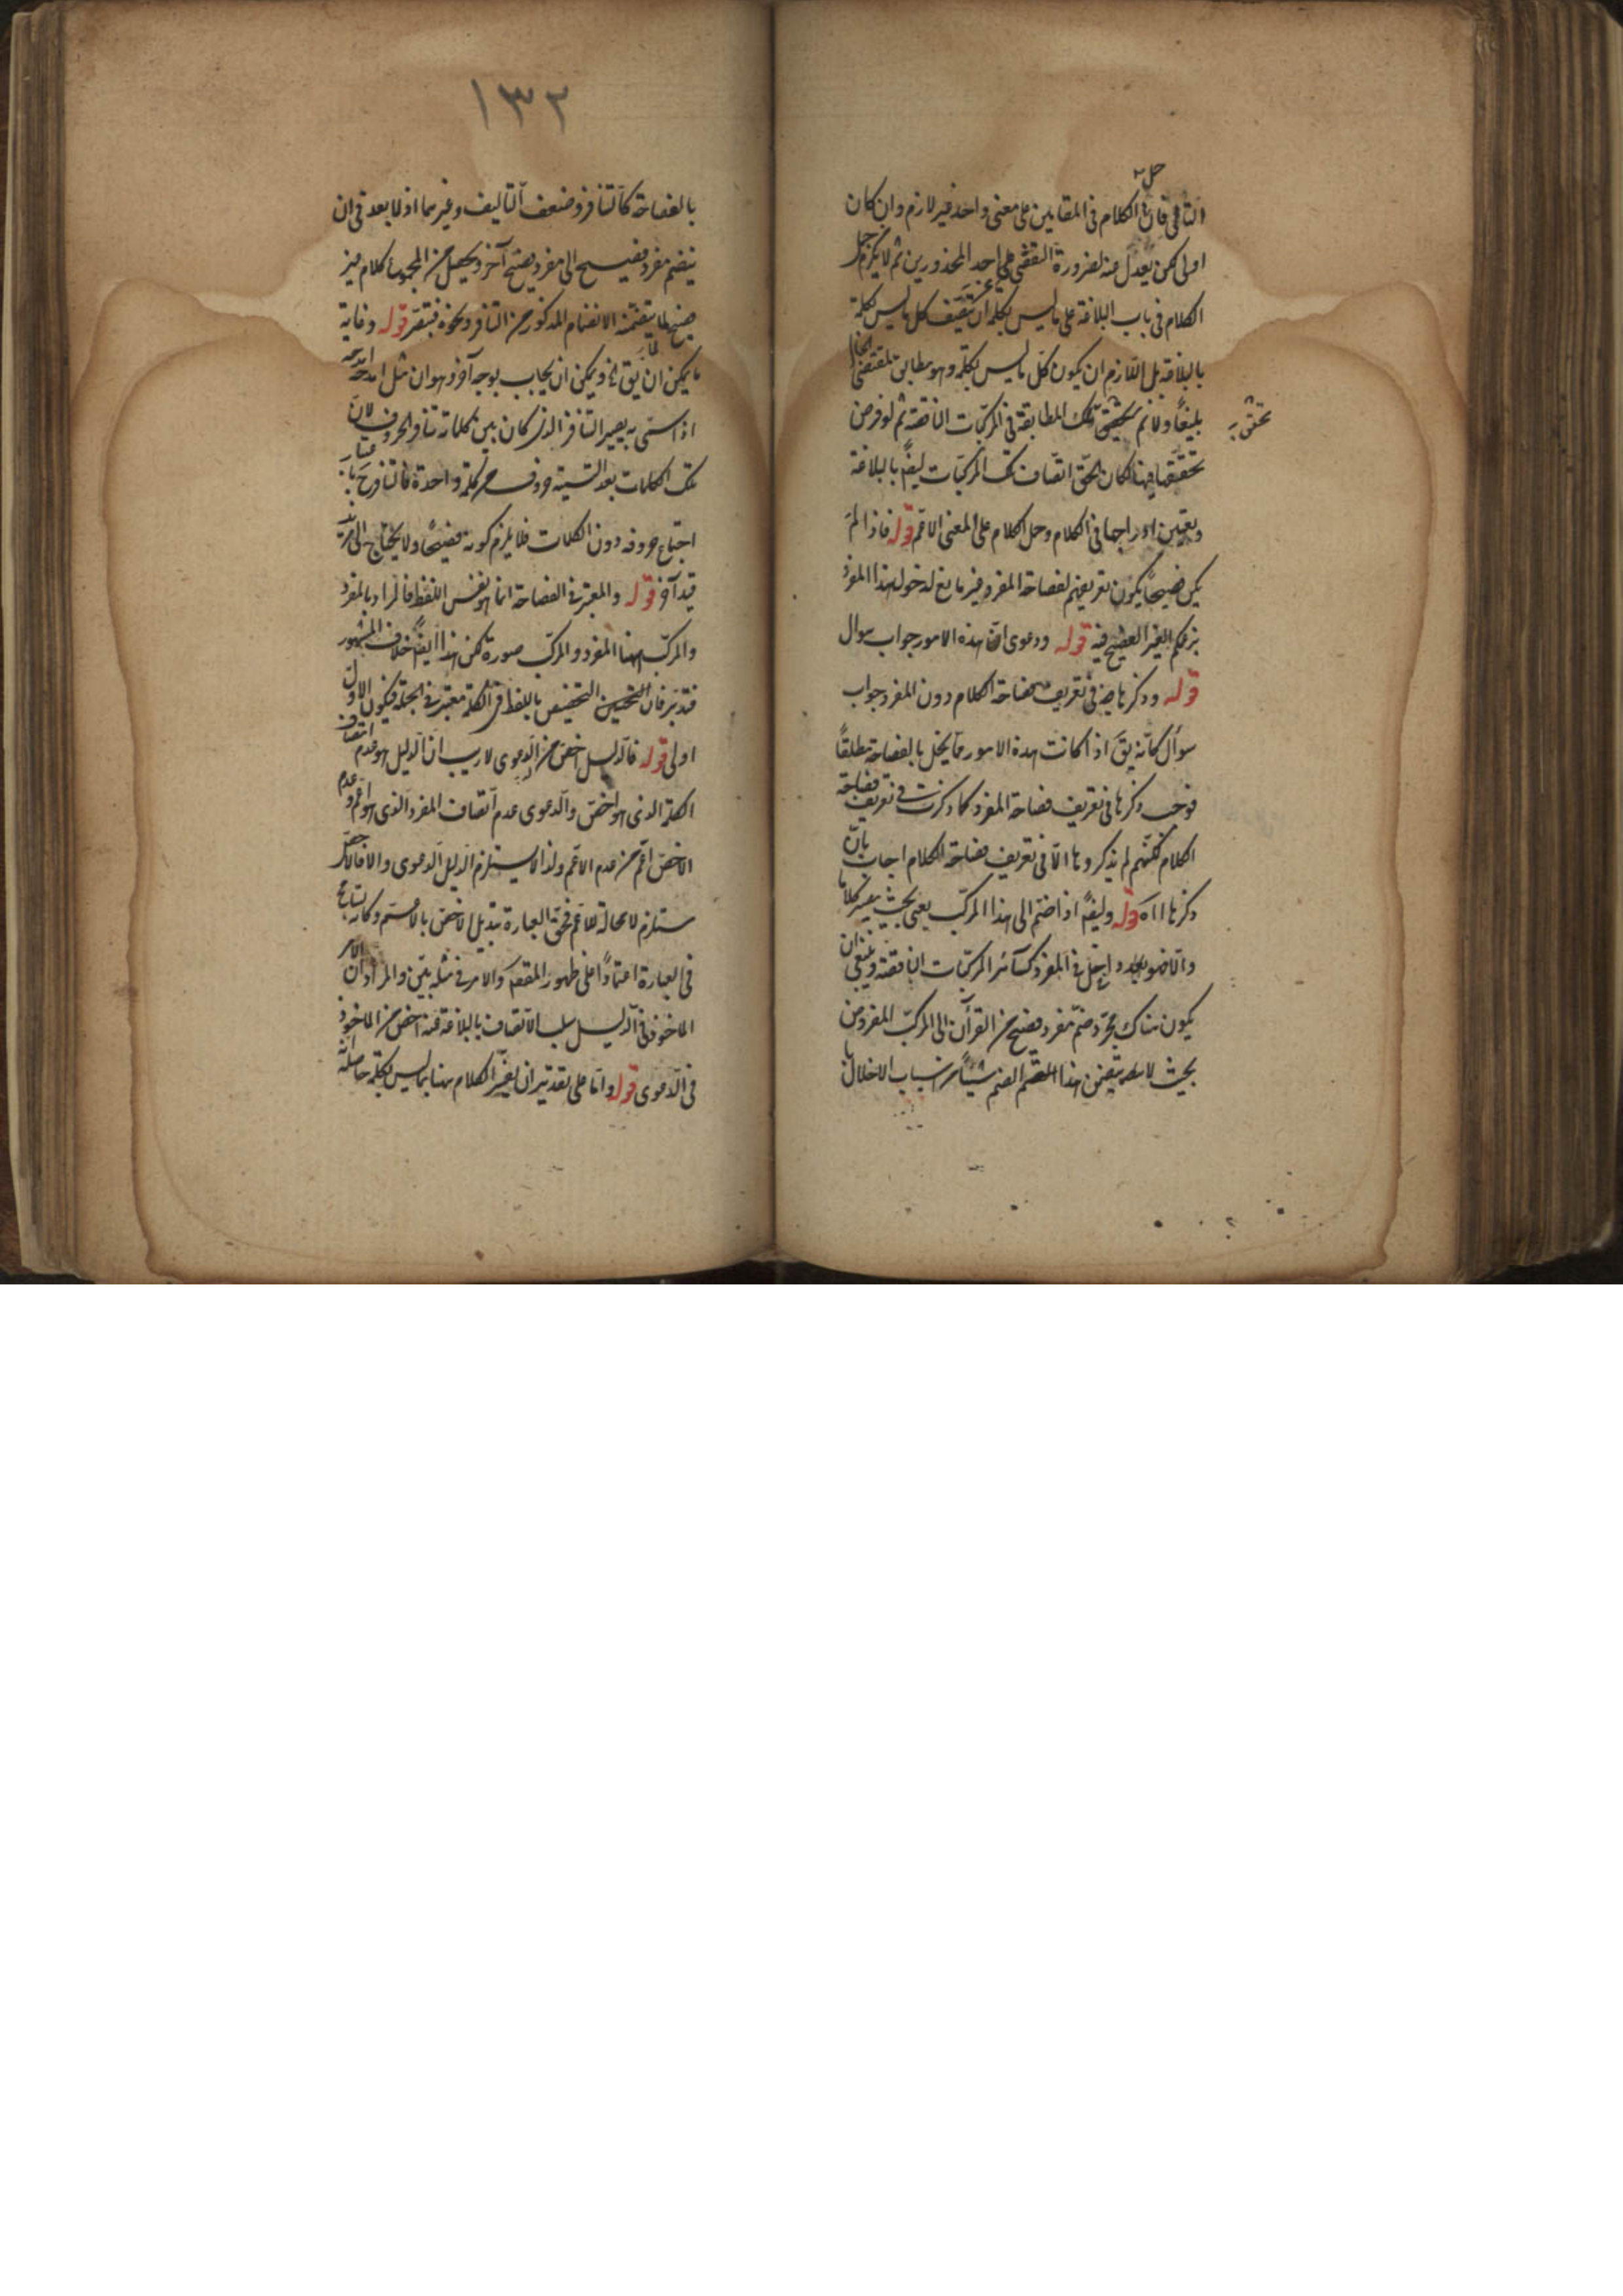 حمل
الثاني فان الكلام في المقابلين على معنى واحد غير لازم وان كان
اولى لكن يعدل عنه لضرورة التفصي عن احد المحذورين ثم لا يلزم حمل
الكلام في باب البلاغة على ما ليس بكلمة ان يتصف كل ما ليس بكلمة
بالبلاغة بل اللازم ان يكون كل ما ليس بكلمة وهو مطابق لمقتضى الحال
بليغا ولا نم تحقق تلك المطابقة في المركبات الناقصة ثم لو فرض
تحققها فيها لكان الحق اتصاف تلك المركبات ايضا بالبلاغة
الكلام وحمل الكلام على المعنى الاعم قوله فاذا لم
يكن فصيحا يكون تعريفهم لفصاحة المفرد غير مانع لدخول هذا المفرد
بزعمكم الغير الفصيح فيه قوله ودعوى ان هذه الامور جواب سوال
قوله وذكرها في تعريف فصاحة الكلام دون المفرد جواب
سوال كانه يق اذا كانت هذه الامور مما يخل بالفصاحة مطلقا
فوجب ذكرها في تعريف فصاحة المفرد كما ذكرت في تعريف فصاحة
الكلام لكنهم لم يذكروها الا في تعريف فصاحة الكلام اجاب بان
ذكرها اه قوله وايضا اذا ضم الى هذا المركب يعني بحيث يصير كلاما
والا فهو داخل في المفرد كسائر المركبات الناقصة وينبغي ان
يكون هناك مجرد ضم مفرد فصيح من القرآن الى المركب المفروض
بحيث لا يتضمن هذا الضم شيئا من اسباب الاخلال
١٣٢
بالفصاحة كالتنافر وضعف التاليف وغيرهما اذ لا بعد في ان
ينضم مفرد فصيح الى مفرد فصيح آخر ويحصل من المجموع كلام غير
فصيح لما يتضمنه الانضمام المذكور من التنافر ونحوه فتبصر قوله وغاية
ما يمكن ان يق ويمكن ان يجاب بوجه آخر وهو ان مثل امدحه
اذا سمي به يصير التنافر الذي كان بين كلماته تنافر الحروف لان
تلك الكلمات بعد التسمية حروف من كلمة واحدة فالتنافر ح باعتبار
اجتماع حروفه دون الكلمات فلا يلزم كونه فصيحا ولا يحتاج الى مزيد
قيد آخر قوله والمعتبر في الفصاحة انما هو نفس اللفظ فالمراد بالمفرد
والمركب ههنا المفرد والمركب صورة لكن هذا ايضا خلاف المشهور
فتدبر فان التخصيص باللفظ في الكلمة معتبر في الجملة فيكون الاول
اولى قوله فالدليل اخص من الدعوى لا ريب ان الدليل هو عدم اتصاف
الكلمة الذي هو اخص والدعوى عدم اتصاف المفرد الذي هو اعم وعدم
الاخص اعم من عدم الاعم ولذا لا يستلزم الدليل الدعوى والا فالاخص
يستلزم لا محالة للاعم فحق العبارة تبديل الاخص بالاعم وكانه تسامح
في العبارة اعتمادا على ظهور المقصود والامر في مثله بين والمراد ان الامر
الماخوذ في الدليل سلب الاتصاف بالبلاغة عنه اخص من الماخوذ
في الدعوى قوله واما على تقدير ان يفسر الكلام ههنا بما ليس بكلمة حاصله